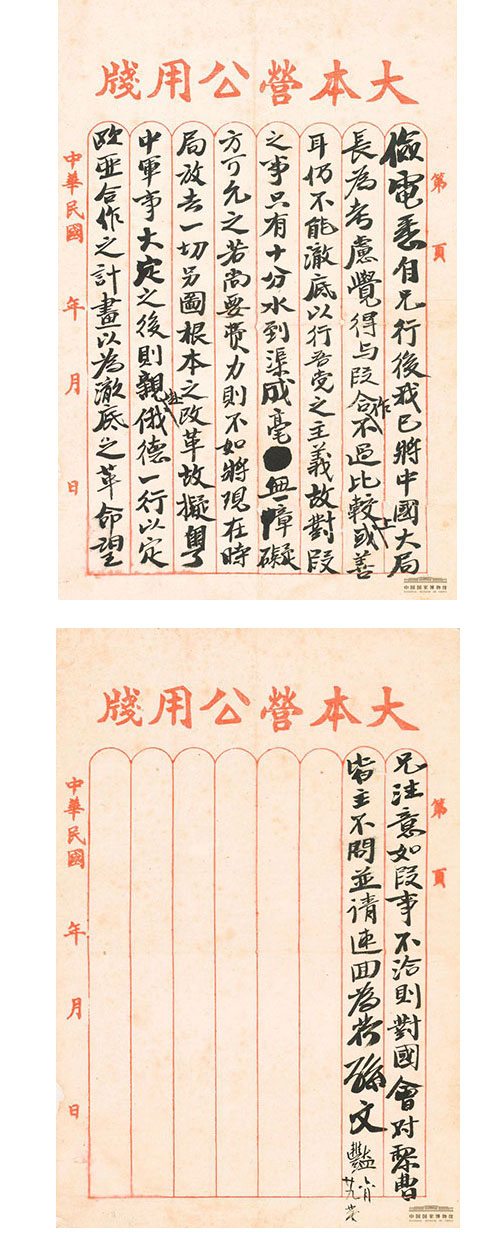 大本營公用牋
第 頁
儉電悉自兄行後我已將中國大局
長為考慮覺得与段合作不過比較上或善
耳仍不能澈底以行吾党之主義故對段
之事只有十分水到渠成毫無障礙
方可允之若尚要費力則不如將現在時
局放去一切另圖根本之改革故擬粤
中軍事大定之後則親赴俄德一行以定
歐亞合作之計畫以為澈底之革命望
中華民國 年 月 日
中国国家博物馆
大本營公用牋
第 頁
兄注意如段事不洽則對國會对黎曹
皆主不問並請速回為荷孫文豔
中華民國 年 月 日
中国国家博物馆